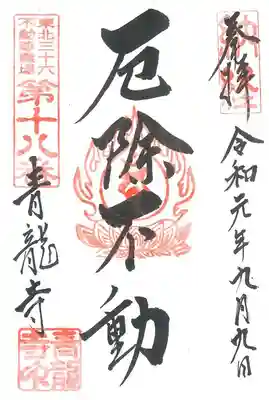 奉拝
令和元年九月九日
厄除不動
東北三十六
不動尊霊場
第十八番
青龍寺